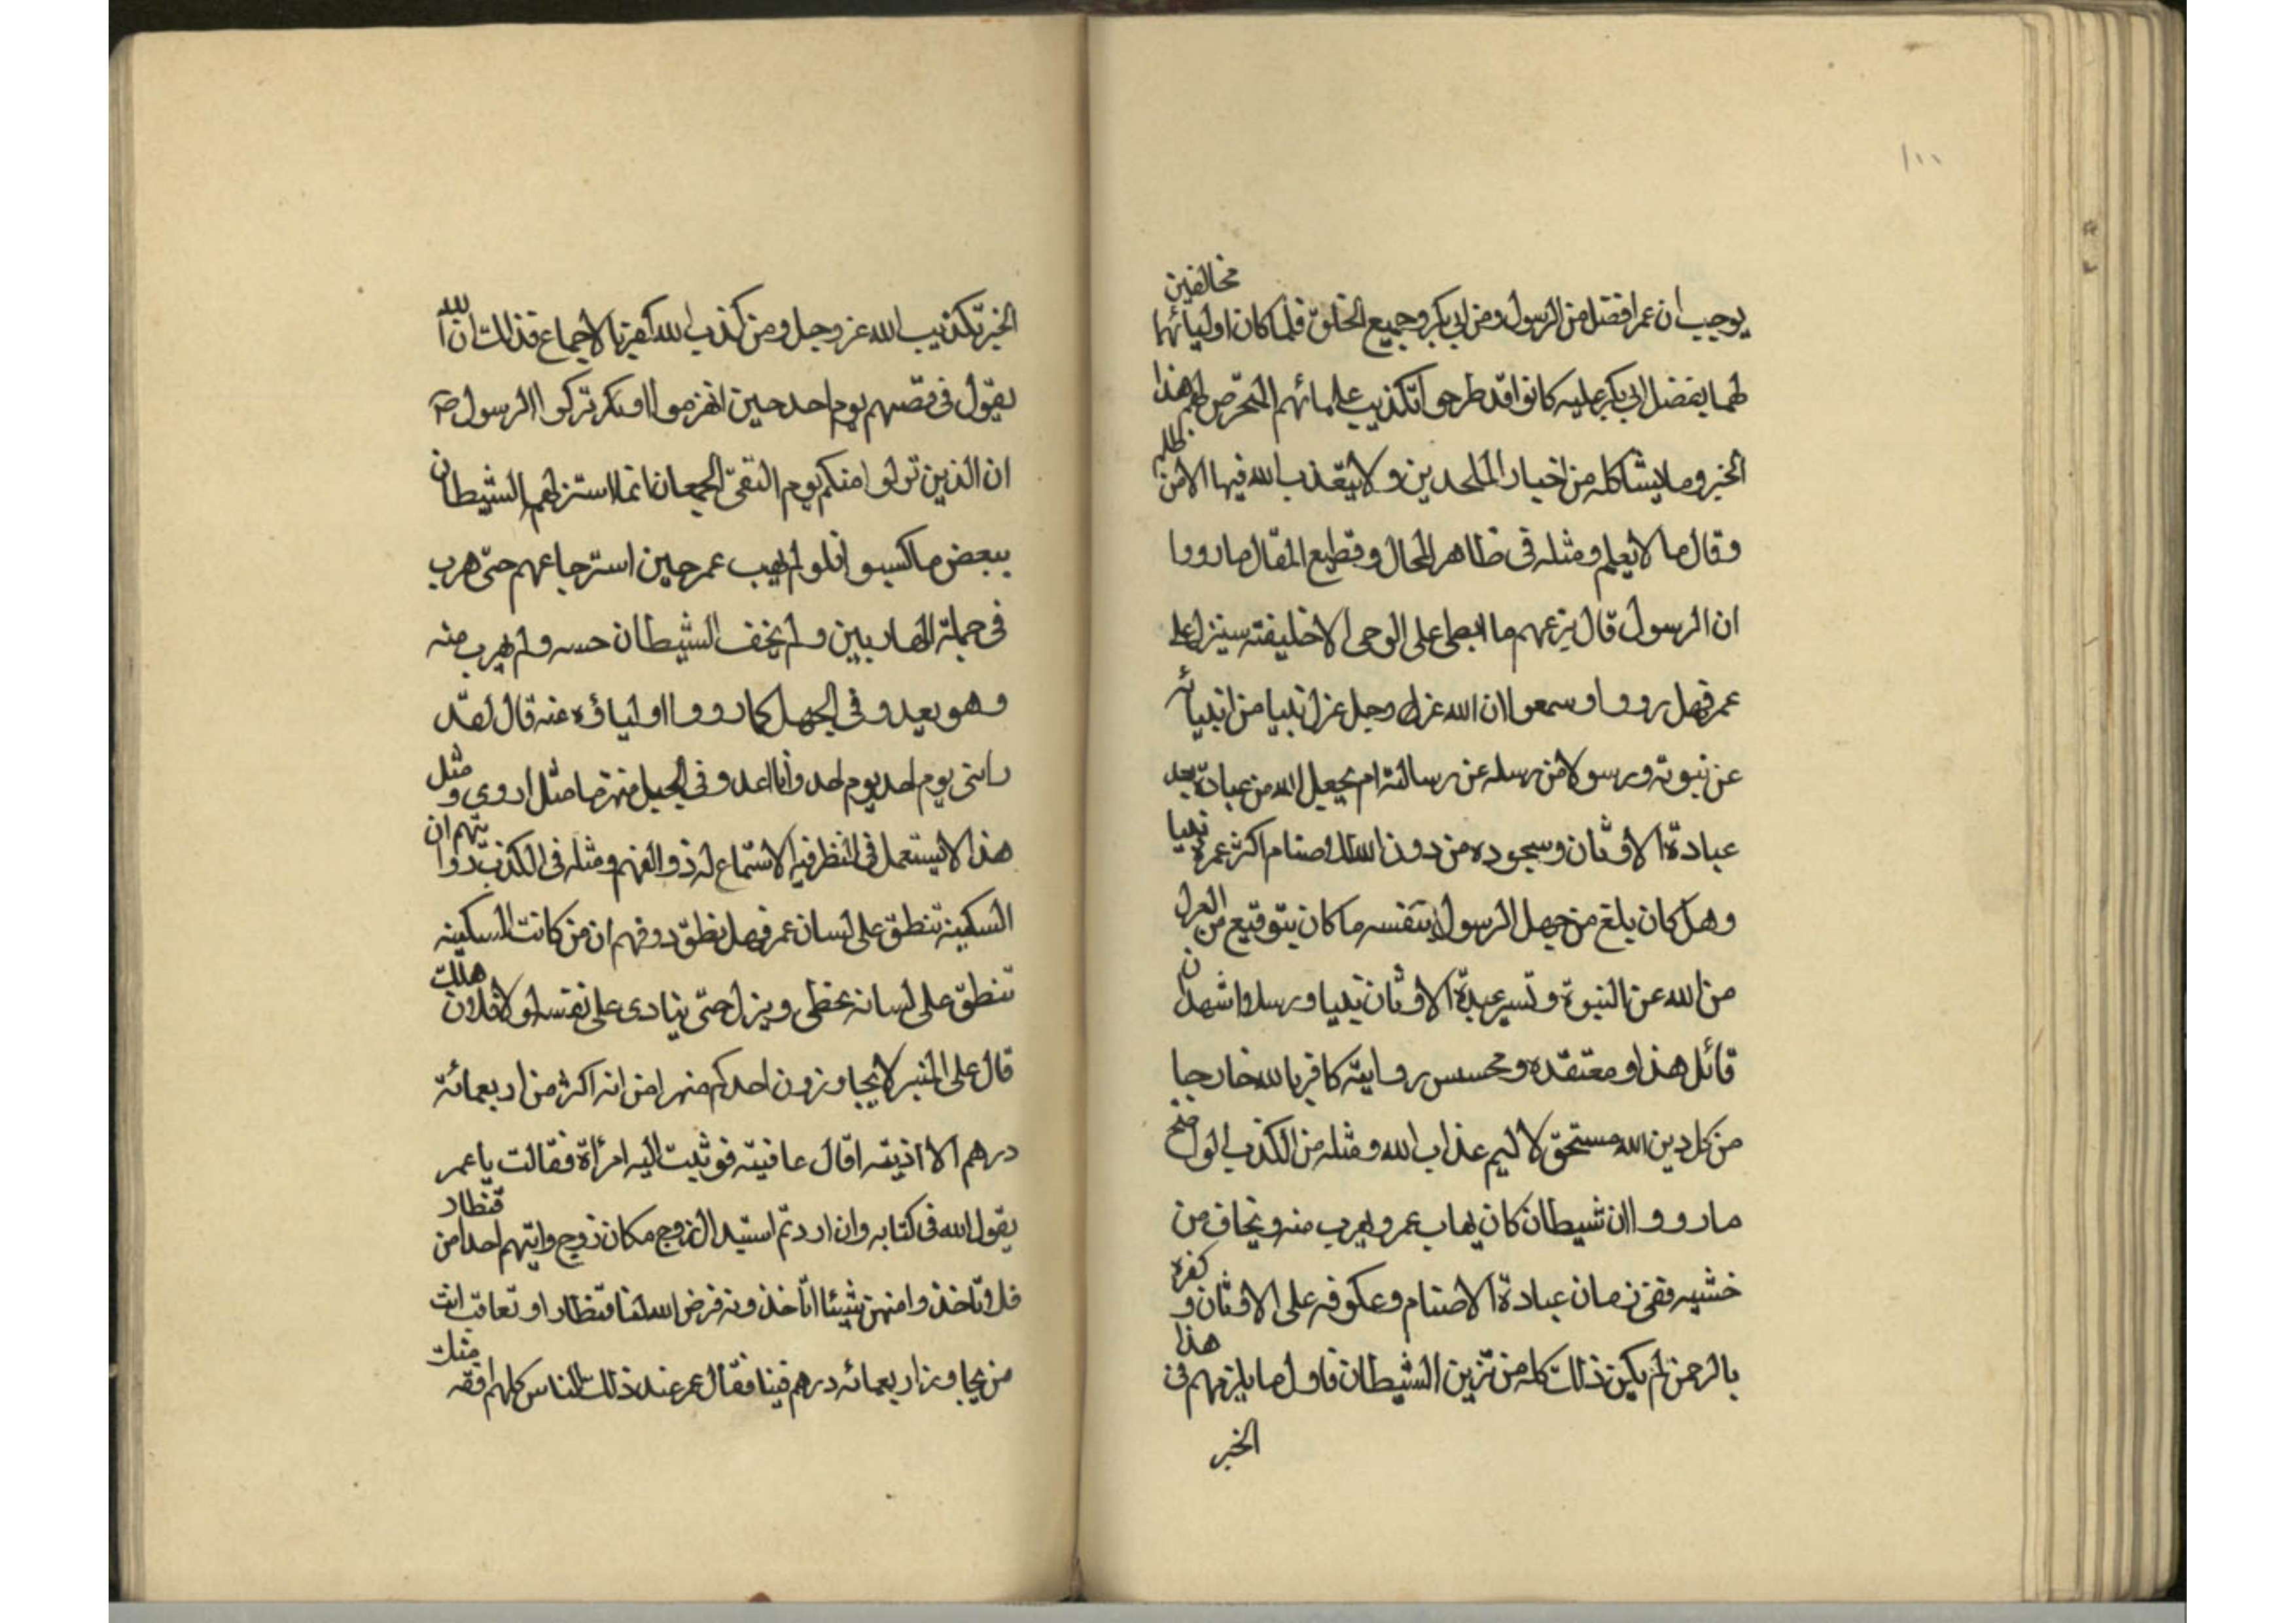 ١٠٠
يوجب ان عمر افضل من الرسول ومن ابي بكر وجميع الخلق فلما كان اوليائهما مخالفين
لهما بفضل ابي بكر عليه كانوا قد طرحوا تكذيب علمائهم المتخرص لهم هذا
الخبر وما يشاكله من اخبار الملحدين ولا يتعذب الله فيها الا من ظلم
وقال ما لا يعلم ومثله في ظاهر المحال وفظيع المقال ما رووا
ان الرسول قال بزعمهم ما ابطى على الوحى الا خليفته سينزل على
عمر فهل رووا وسمعوا ان الله عز وجل عزل نبيا من انبيائه
عن نبوته ورسولا من رسله عن رسالته ام يجعل الله من عباده بعد
عبادة الاوثان وسجوده من دون الله للاصنام اكثر عمره نبيا
وهل كان بلغ من جهل الرسول بنفسه ما كان يتوقيع من العزل
من الله عن النبوة وتسير عبدة الاوثان نبيا ورسلا واشهد ان
قائل هذا ومعتقده ومحسس روايته كافر بالله خارجا
من كل دين الله مستحق لاليم عذاب الله ومثله من الكذب الواضح
مارووا ان شيطان كان يهاب عمر ويهرب منه ويخاف من
خشيه ففى زمان عبادة الاصنام وعكوفه على الاوثان و كفره
بالرحمن لم يكن ذلك كله من تزين الشيطان فاول ما يلزمهم في هذا
الخبر
الخبر تكذيب الله عز وجل ومن كذب الله كفر بالاجماع فذلك ان الله
يقول في قصهم يوم احد حين انهزموا وتركوا الرسول ص
ان الذين تولوا منكم يوم التقى الجمعان انما استزلهم الشيطان
ببعض ما كسبوا فلو لم يهب عمر حين استرجاعهم حتى هرب
في جملة الهاربين ولم يخف الشيطان حسه ولم يهرب منه
وهو يعدو في الجهل كما رووا اولياؤه عنه قال لقد
رايتى يوم احد يوم احد وانا اعدو في الجبل منهزما مثل اروى و مثل
هذا لا يستعمل في النظر فيه الاستماع له ذو الفهم ومثله في الكذب روايتهم ان
السكينة تنطق على لسان عمر فهل نطق ذو فهم ان من كانت السكينه
تنطق على لسانه يخطى ويزل حتى ينادى على نفسه لولا فلان هلك
قال على المنبر لا يجاوزون احدكم مهرا من انه اكثر من اربعمائة
درهم الا اذيته اقال عافيته فوثبت اليه امرأة فقالت يا عمر
يقول الله في كتابه وان اردتم استبدال زوج مكان زوج واتيتم احدا من قنطار
فلا تأخذوا منهن شيئا اتأخذونه فرض الله لنا قنطارا وتعاقب انت
من يجاوز اربعمائه درهم فينا فقال عمر عند ذلك الناس كلهم افقه منك